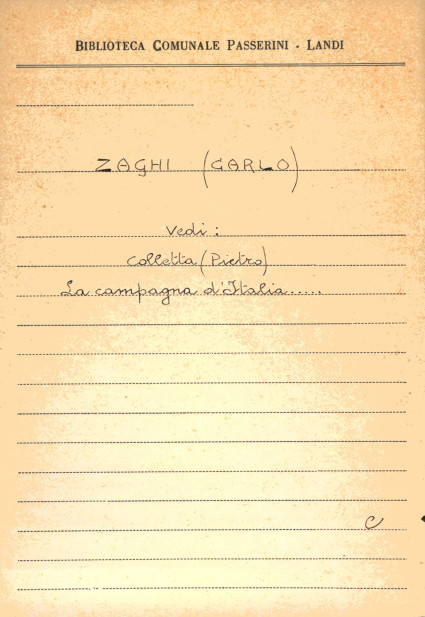 BIBLIOTECA COMUNALE PASSERINI - LANDI
ZAGHI (CARLO)
Vedi:
Colletta (Pietro)
La campagna d'Italia.....
C